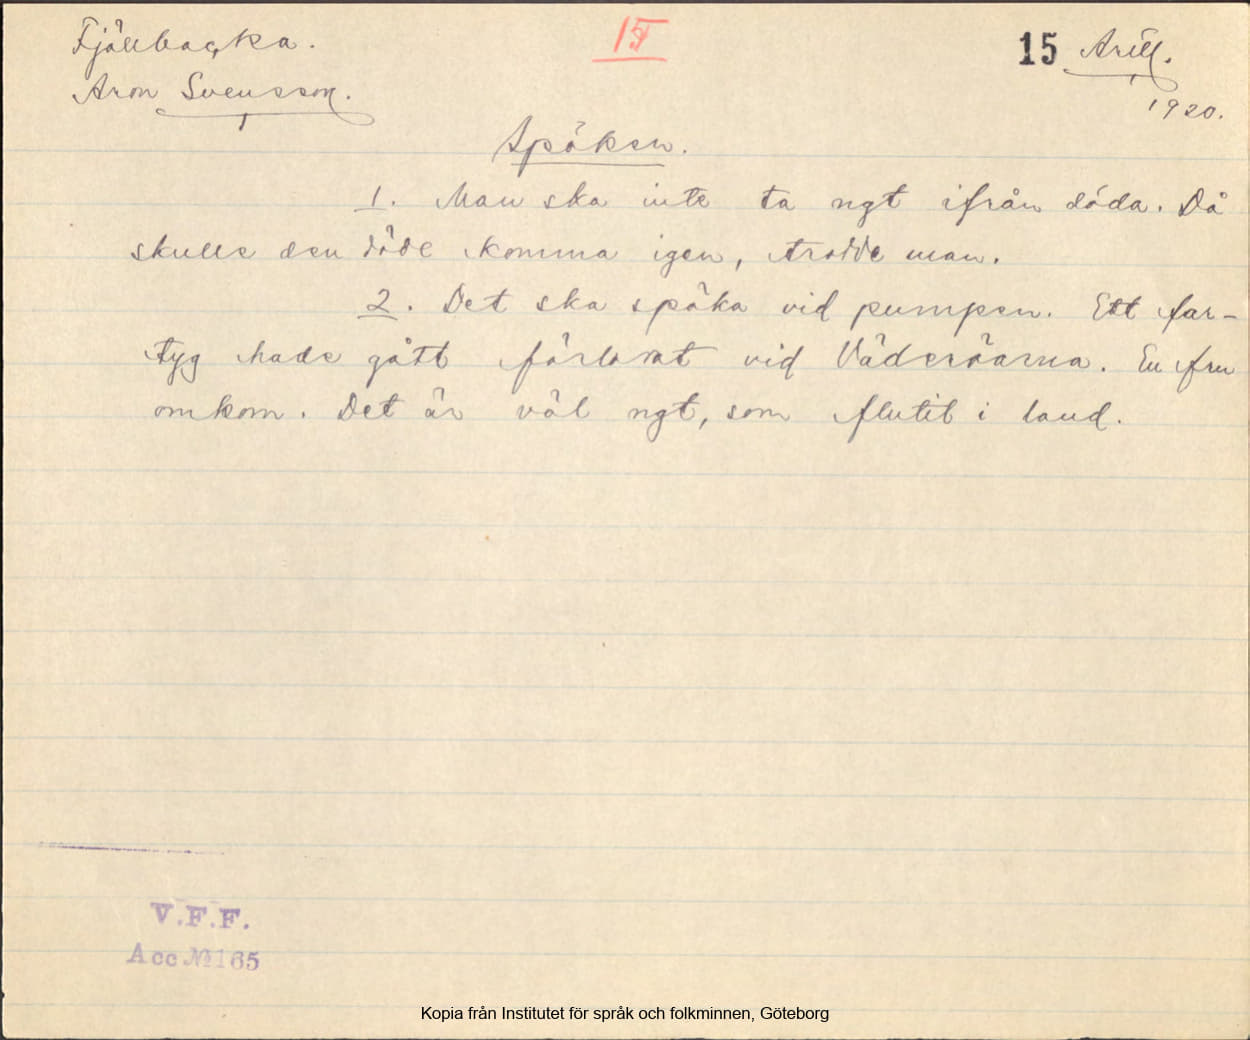 Fjällbacka.
15
15 Arill.
Aron Svensson.
1920.
Spöken.
1. Man ska inte ta ngt ifrån döda. Då
skulle den döde komma igen, trodde man.
2. Det ska spöka vid pumpen. Ett far-
tyg hade gått förlorat vid Väderöarna. En fru
omkom. Det är väl ngt, som flutit i land.
V.F.F.
Acc № 165
Kopia från Institutet för språk och folkminnen, Göteborg